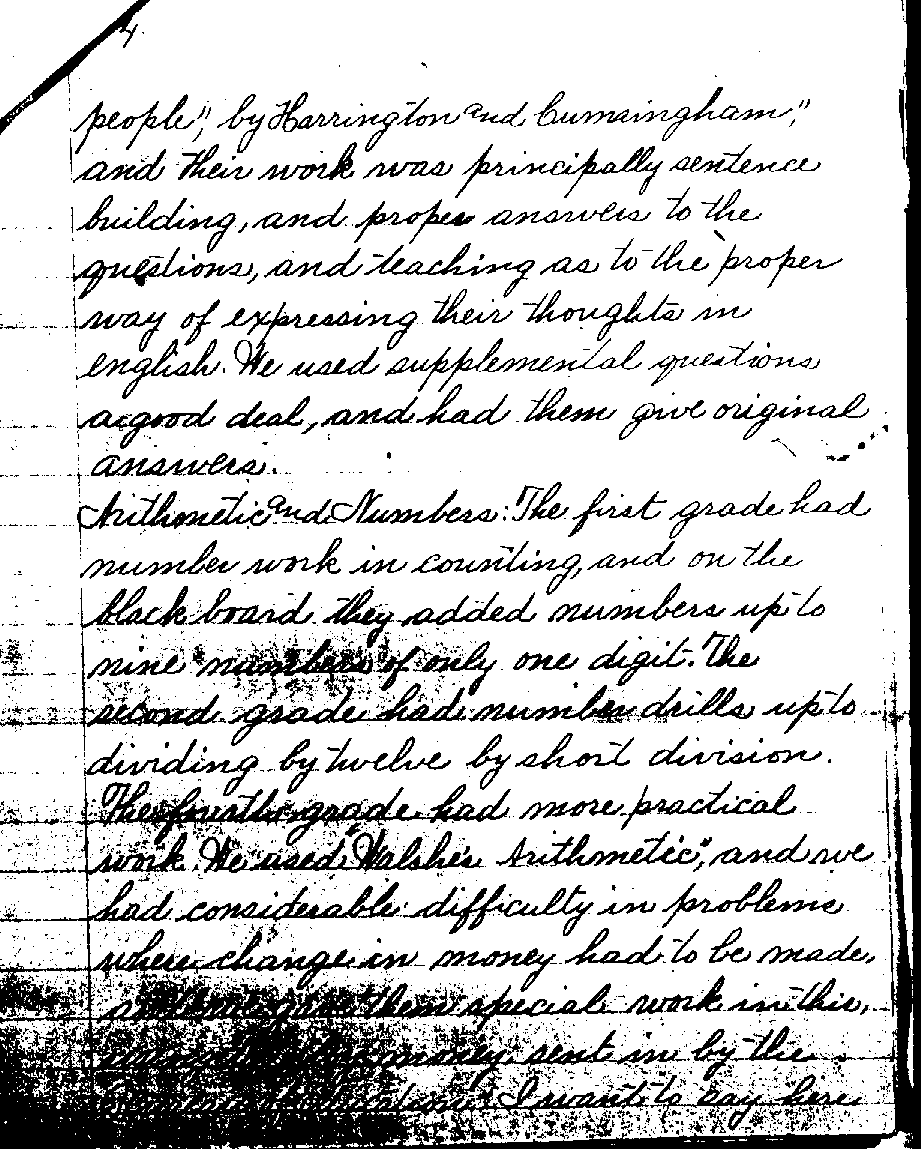 4.
people", by Harrington and Cunningham",
and their work was principally sentence
building, and proper answers to the
questions, and teaching as to the proper
way of expressing their thoughts in
english. We used supplemental questions
a good deal, and had them give original
answers.
Arithmetic and Numbers: The first grade had
number work in counting, and on the
black board they added numbers up to
nine numbers of only one digit. The
second grade had number drills up to
dividing by twelve by short division.
The fourth grade had more practical
work. We used, Walshe's Arithmetic", and we
had considerable difficulty in problems
where change in money had to be made,
so we gave them special work in this,
money sent in by the
I want to say here